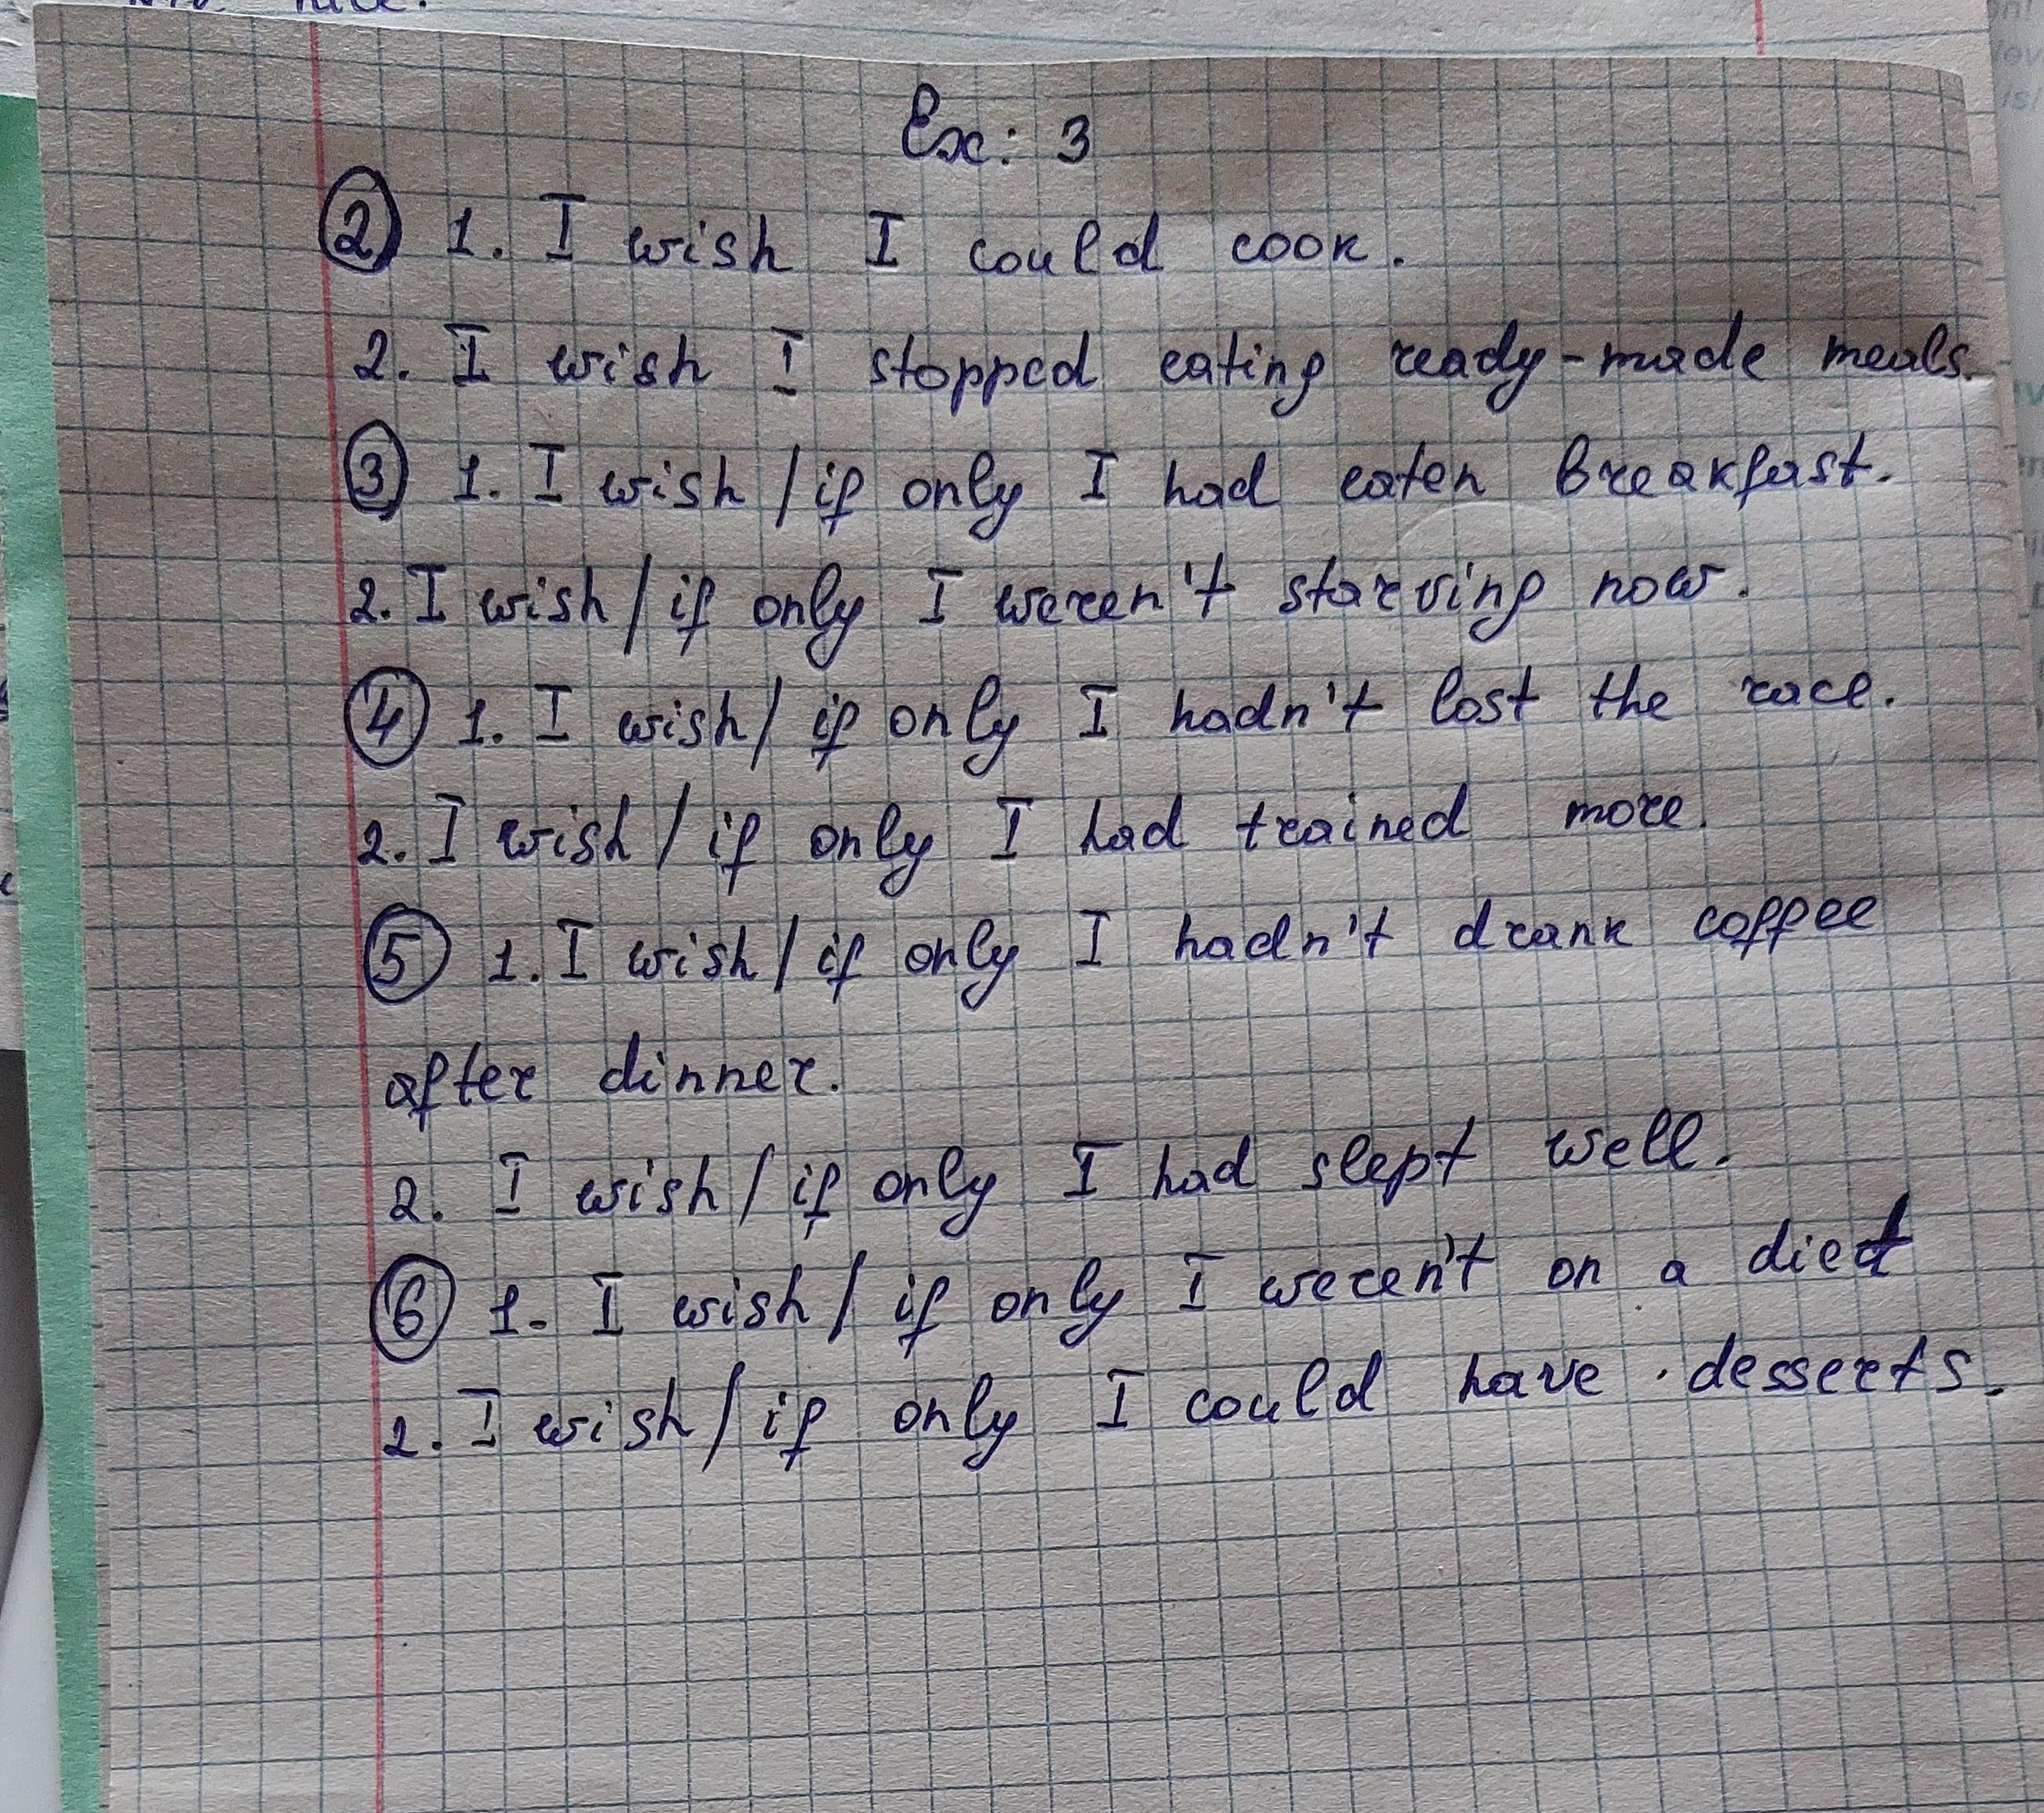 Ex: 3
② 1. I wish I could cook.
2. I wish I stopped eating ready-made meals.
③ 1. I wish / if only I had eaten breakfast.
2. I wish / if only I weren't starving now.
④ 1. I wish / if only I hadn't lost the race.
2. I wish / if only I had trained more.
⑤ 1. I wish / if only I hadn't drank coffee
after dinner.
2. I wish / if only I had slept well.
⑥ 1. I wish / if only I weren't on a diet
2. I wish / if only I could have desserts.